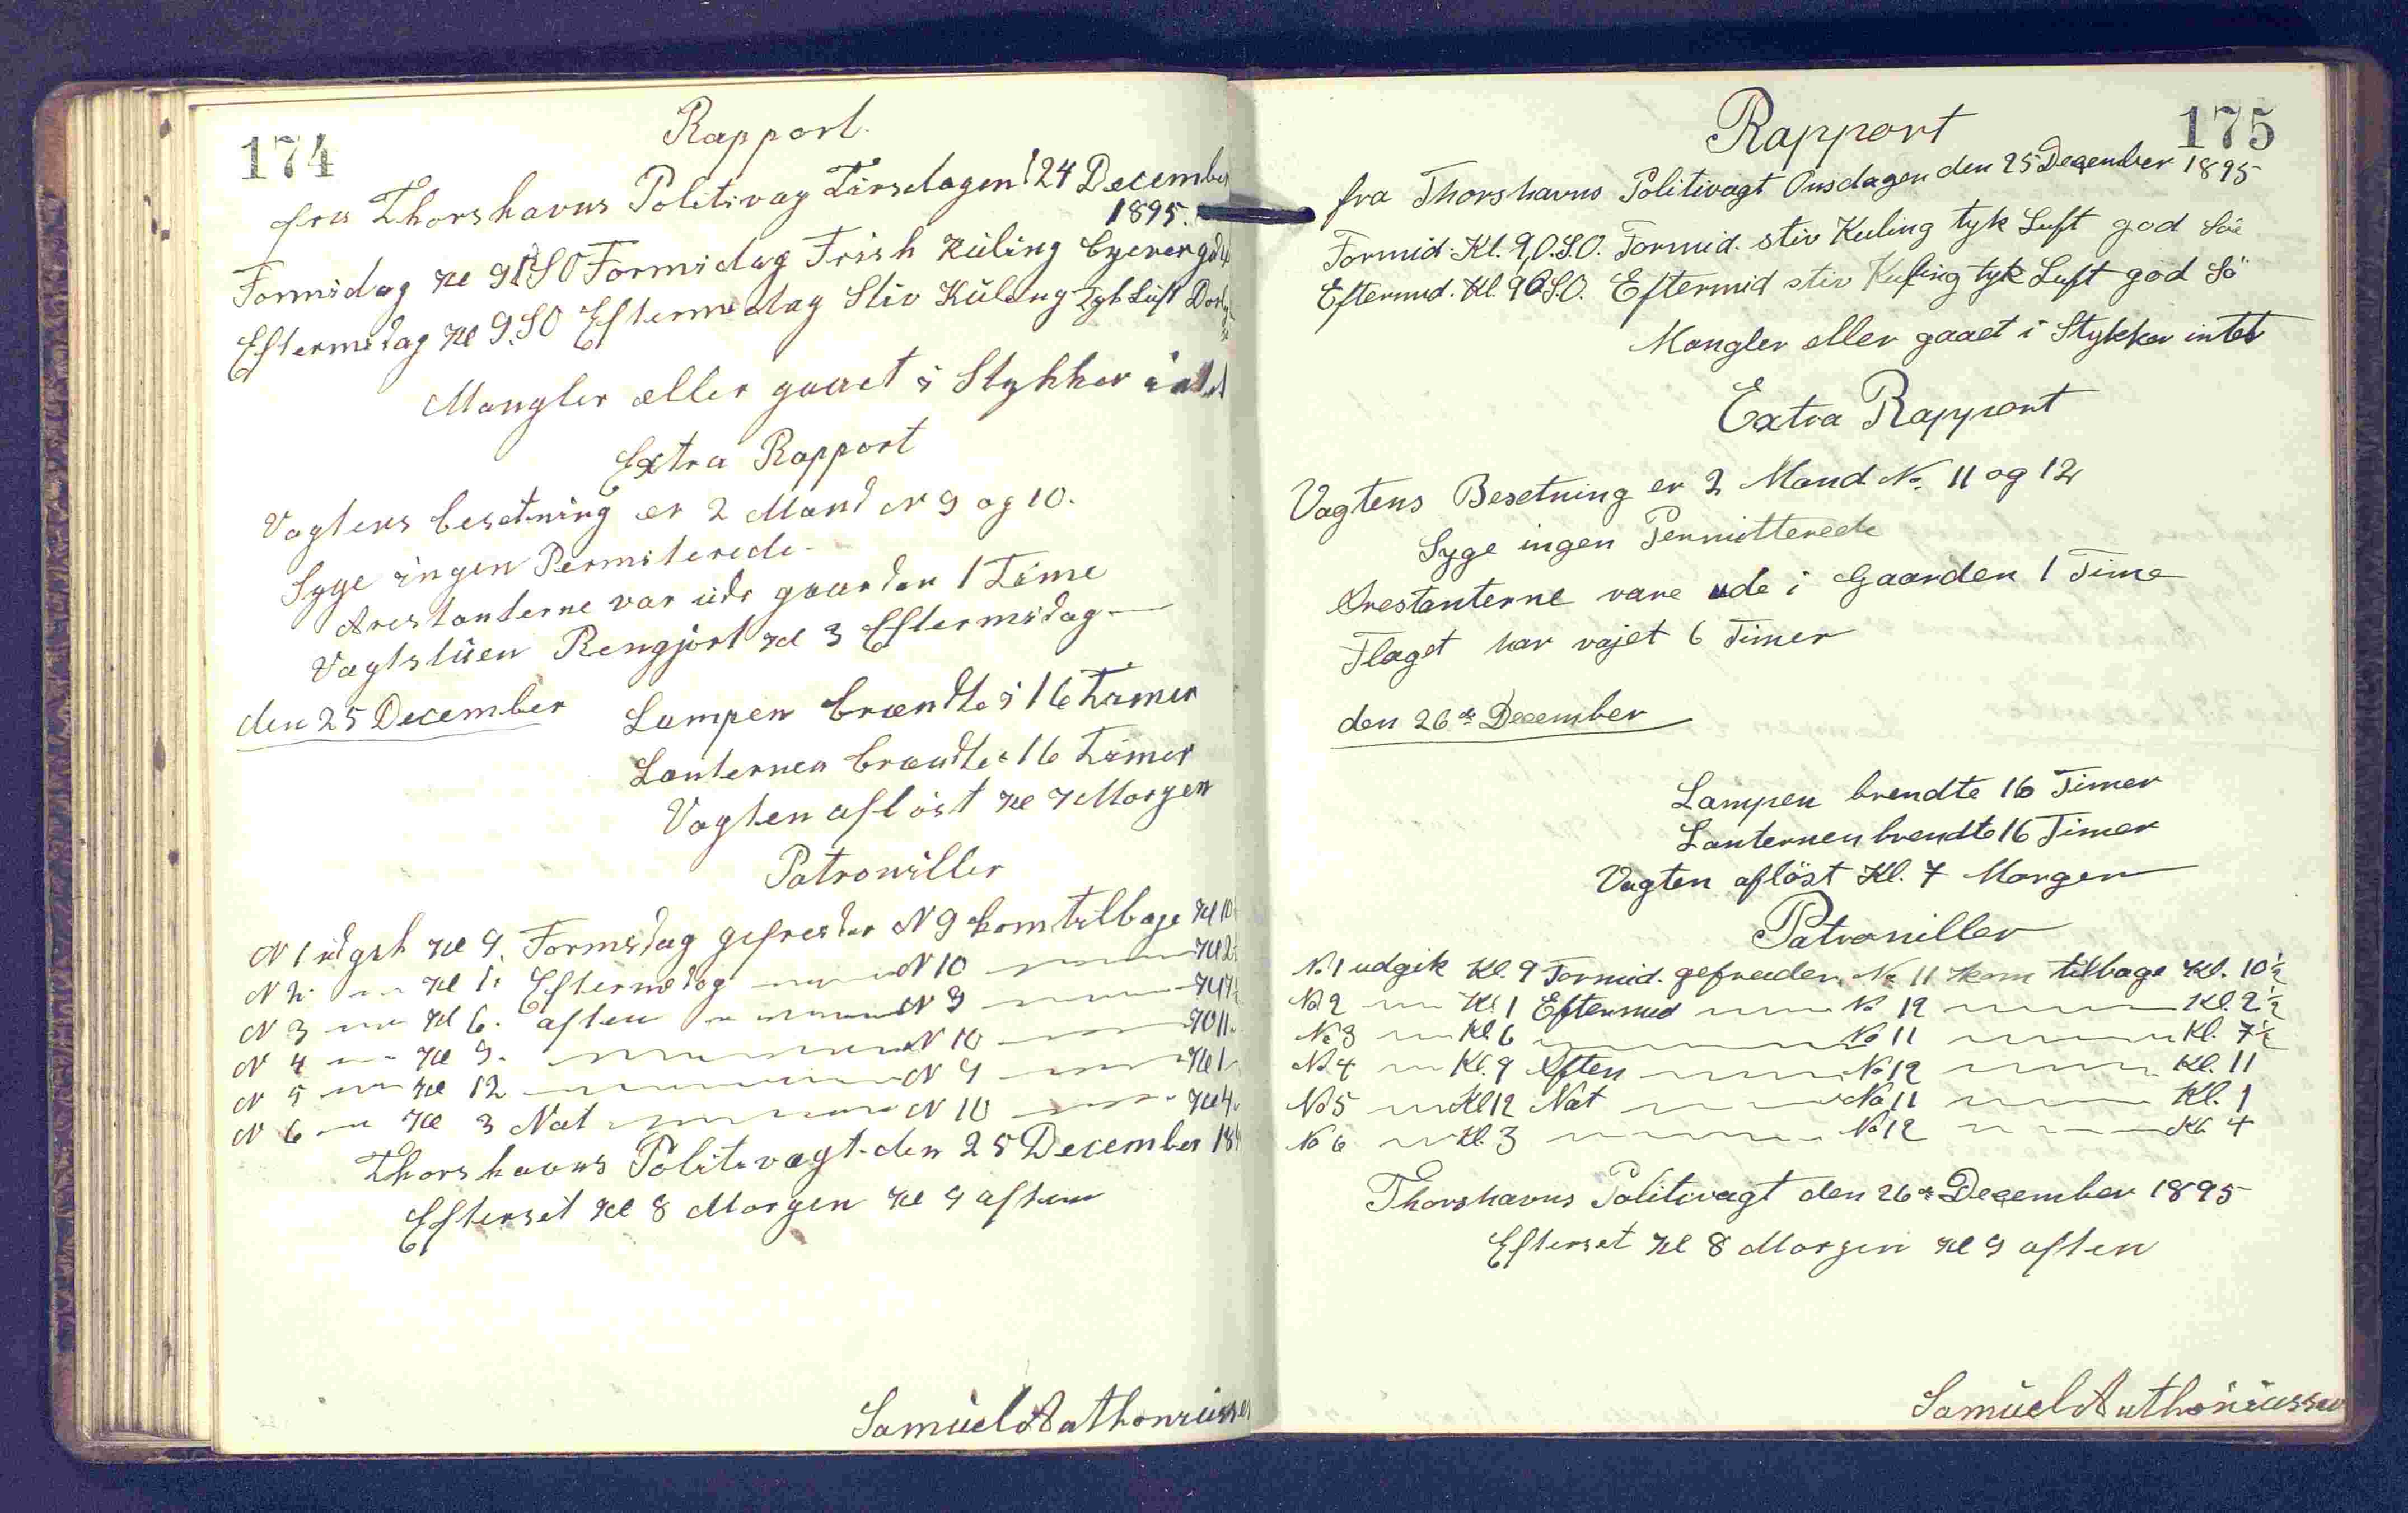 174
Rapport.
fra Thorshavns Politivag Tirsdagen d 24 December
1895.
Formidag Kl 9 SO Formidag Frisk Küling byever
Eftermidag Kl 9. SO Eftermidag Stiv Küling Tyk Lüft
Mangler eller gaaet i Stykker intet
Extra Rapport
Vagtens besetning er 2 Mand N 9 og 10.
Syge ingen Permiterede.
Arestanterne var üde gaarden 1 Time
Vagtstüen Rengjort Kl 3 Eftermidag
den 25 December
Lampen brændte i 16 Timer
Lanternen brændte i 16 Timer
Vagten afløst Kl 7 Morgen
Patrouiller
N 1 üdgik Kl 9. Formidag gefreider N 9 kom tilbage Kl 10
N 2. Kl 1. Eftermidag N 10 Kl 2
N 3 Kl 6. aften N 9 Kl 7½
N 4 Kl 9. N 10 Kl 11.
N 5 Kl 12 N 9 Kl 1
N 6 Kl 3 Nat N 10 Kl 4.
Thorshavns Politivagt den 25 December 18
Efterset Kl 8 Morgen Kl 9 aften
Samüel Anthoniüssen
175
Rapport
fra Thorshavns Politivagt Onsdagen den 25 December 1895
Formid. Kl. 9, O.S.O. Formid. stiv Kuling tyk Luft god Sö
Eftermid. Kl. 9 O.S.O. Eftermid stiv Kuling tyk Luft god Sö
Mangler eller gaaet i Stykker intet
Extra Rapport
Vagtens Besetning er 2 Mand No. 11 og 12
Syge ingen Permitterede
Arestanterne vare ude i Gaarden 1 Time
Flaget har vajet 6 Timer
den 26de December
Lampen brendte 16 Timer
Lanternen brendte 16 Timer
Vagten aflöst Kl. 7 Morgen
Patrouiller
No. 1 udgik Kl. 9 Formid. gefreider No 11 kom tilbage Kl. 10½
No. 2 Kl. 1 Eftermid No 12 Kl. 2½
No 3 Kl. 6 No 11 Kl. 7½
No. 4 Kl. 9 Aften No 12 Kl. 11
No 5 Kl 12 Nat No 11 Kl. 1
No 6 Kl. 3 No 12 Kl. 4
Thorshavns Politivagt den 26de December 1895
Efterset Kl 8 Morgen Kl 9 aften
Samüel Anthoniüssen